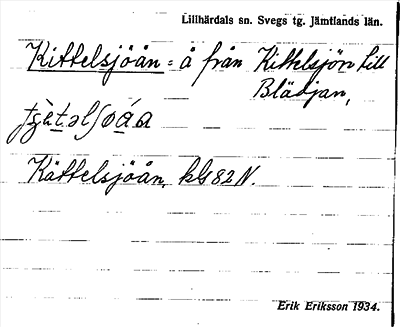 Lillhärdals sn. Svegs tg. Jämtlands län.
Kittelsjöån = å från Kittelsjön till
Blädjan,
Kättelsjöån, kG82N.
Erik Eriksson 1934.